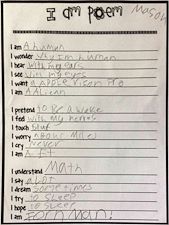 I am poem
Mason
I am A human
I wonder Why I'm human
I hear With my ears
I see With my eyes
I want a Apple Vison Pro
I am A ALien
I pretend to Be a wake
I feel With my nerves
I touch Stuff
I worry about Miles
I cry Never
I am A fit
I understand Math
I say a LOT
I dream Some times
I try to SLeep
I hope to SLeep
I am